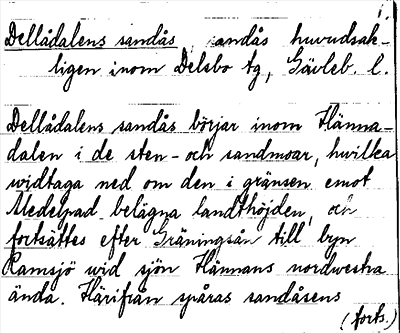 1.
Dellådalens sandås, sandås huvudsak-
ligen inom Delsbo tg, Gävleb. l.
Dellådalens sandås börjar inom Hänna-
dalen i de sten- och sandmoar, hvilka
widtaga ned om den i gränsen emot
Medelpad belägna landthöjden, och
fortsättes efter Gräningsån till byn
Ramsjö wid sjön Hännans nordwestra
ända. Härifrån spåras sandåsens
(forts.)